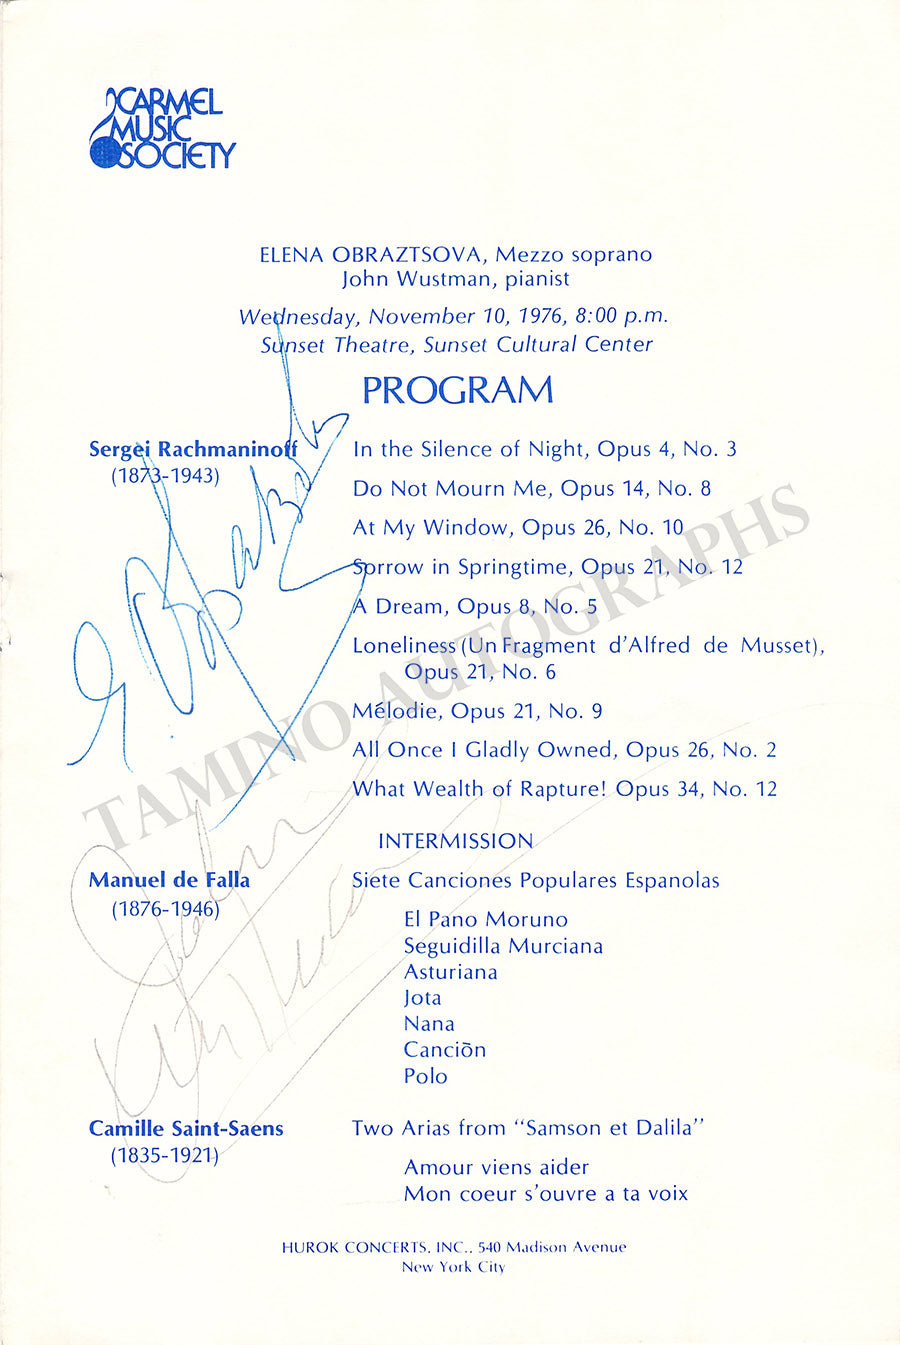 CARMEL
MUSIC
SOCIETY
ELENA OBRAZTSOVA, Mezzo soprano
John Wustman, pianist
Wednesday, November 10, 1976, 8:00 p.m.
Sunset Theatre, Sunset Cultural Center
PROGRAM
Sergei Rachmaninoff
(1873-1943)
In the Silence of Night, Opus 4, No. 3
Do Not Mourn Me, Opus 14, No. 8
At My Window, Opus 26, No. 10
Sorrow in Springtime, Opus 21, No. 12
A Dream, Opus 8, No. 5
Loneliness (Un Fragment d'Alfred de Musset),
Opus 21, No. 6
Mélodie, Opus 21, No. 9
All Once I Gladly Owned, Opus 26, No. 2
What Wealth of Rapture! Opus 34, No. 12
E. Obraztsova
TAMINO AUTOGRAPHS
INTERMISSION
Manuel de Falla
(1876-1946)
Siete Canciones Populares Espanolas
El Pano Moruno
Seguidilla Murciana
Asturiana
Jota
Nana
Canciōn
Polo
John
Wustman
Camille Saint-Saens
(1835-1921)
Two Arias from "Samson et Dalila"
Amour viens aider
Mon coeur s'ouvre a ta voix
HUROK CONCERTS, INC., 540 Madison Avenue
New York City